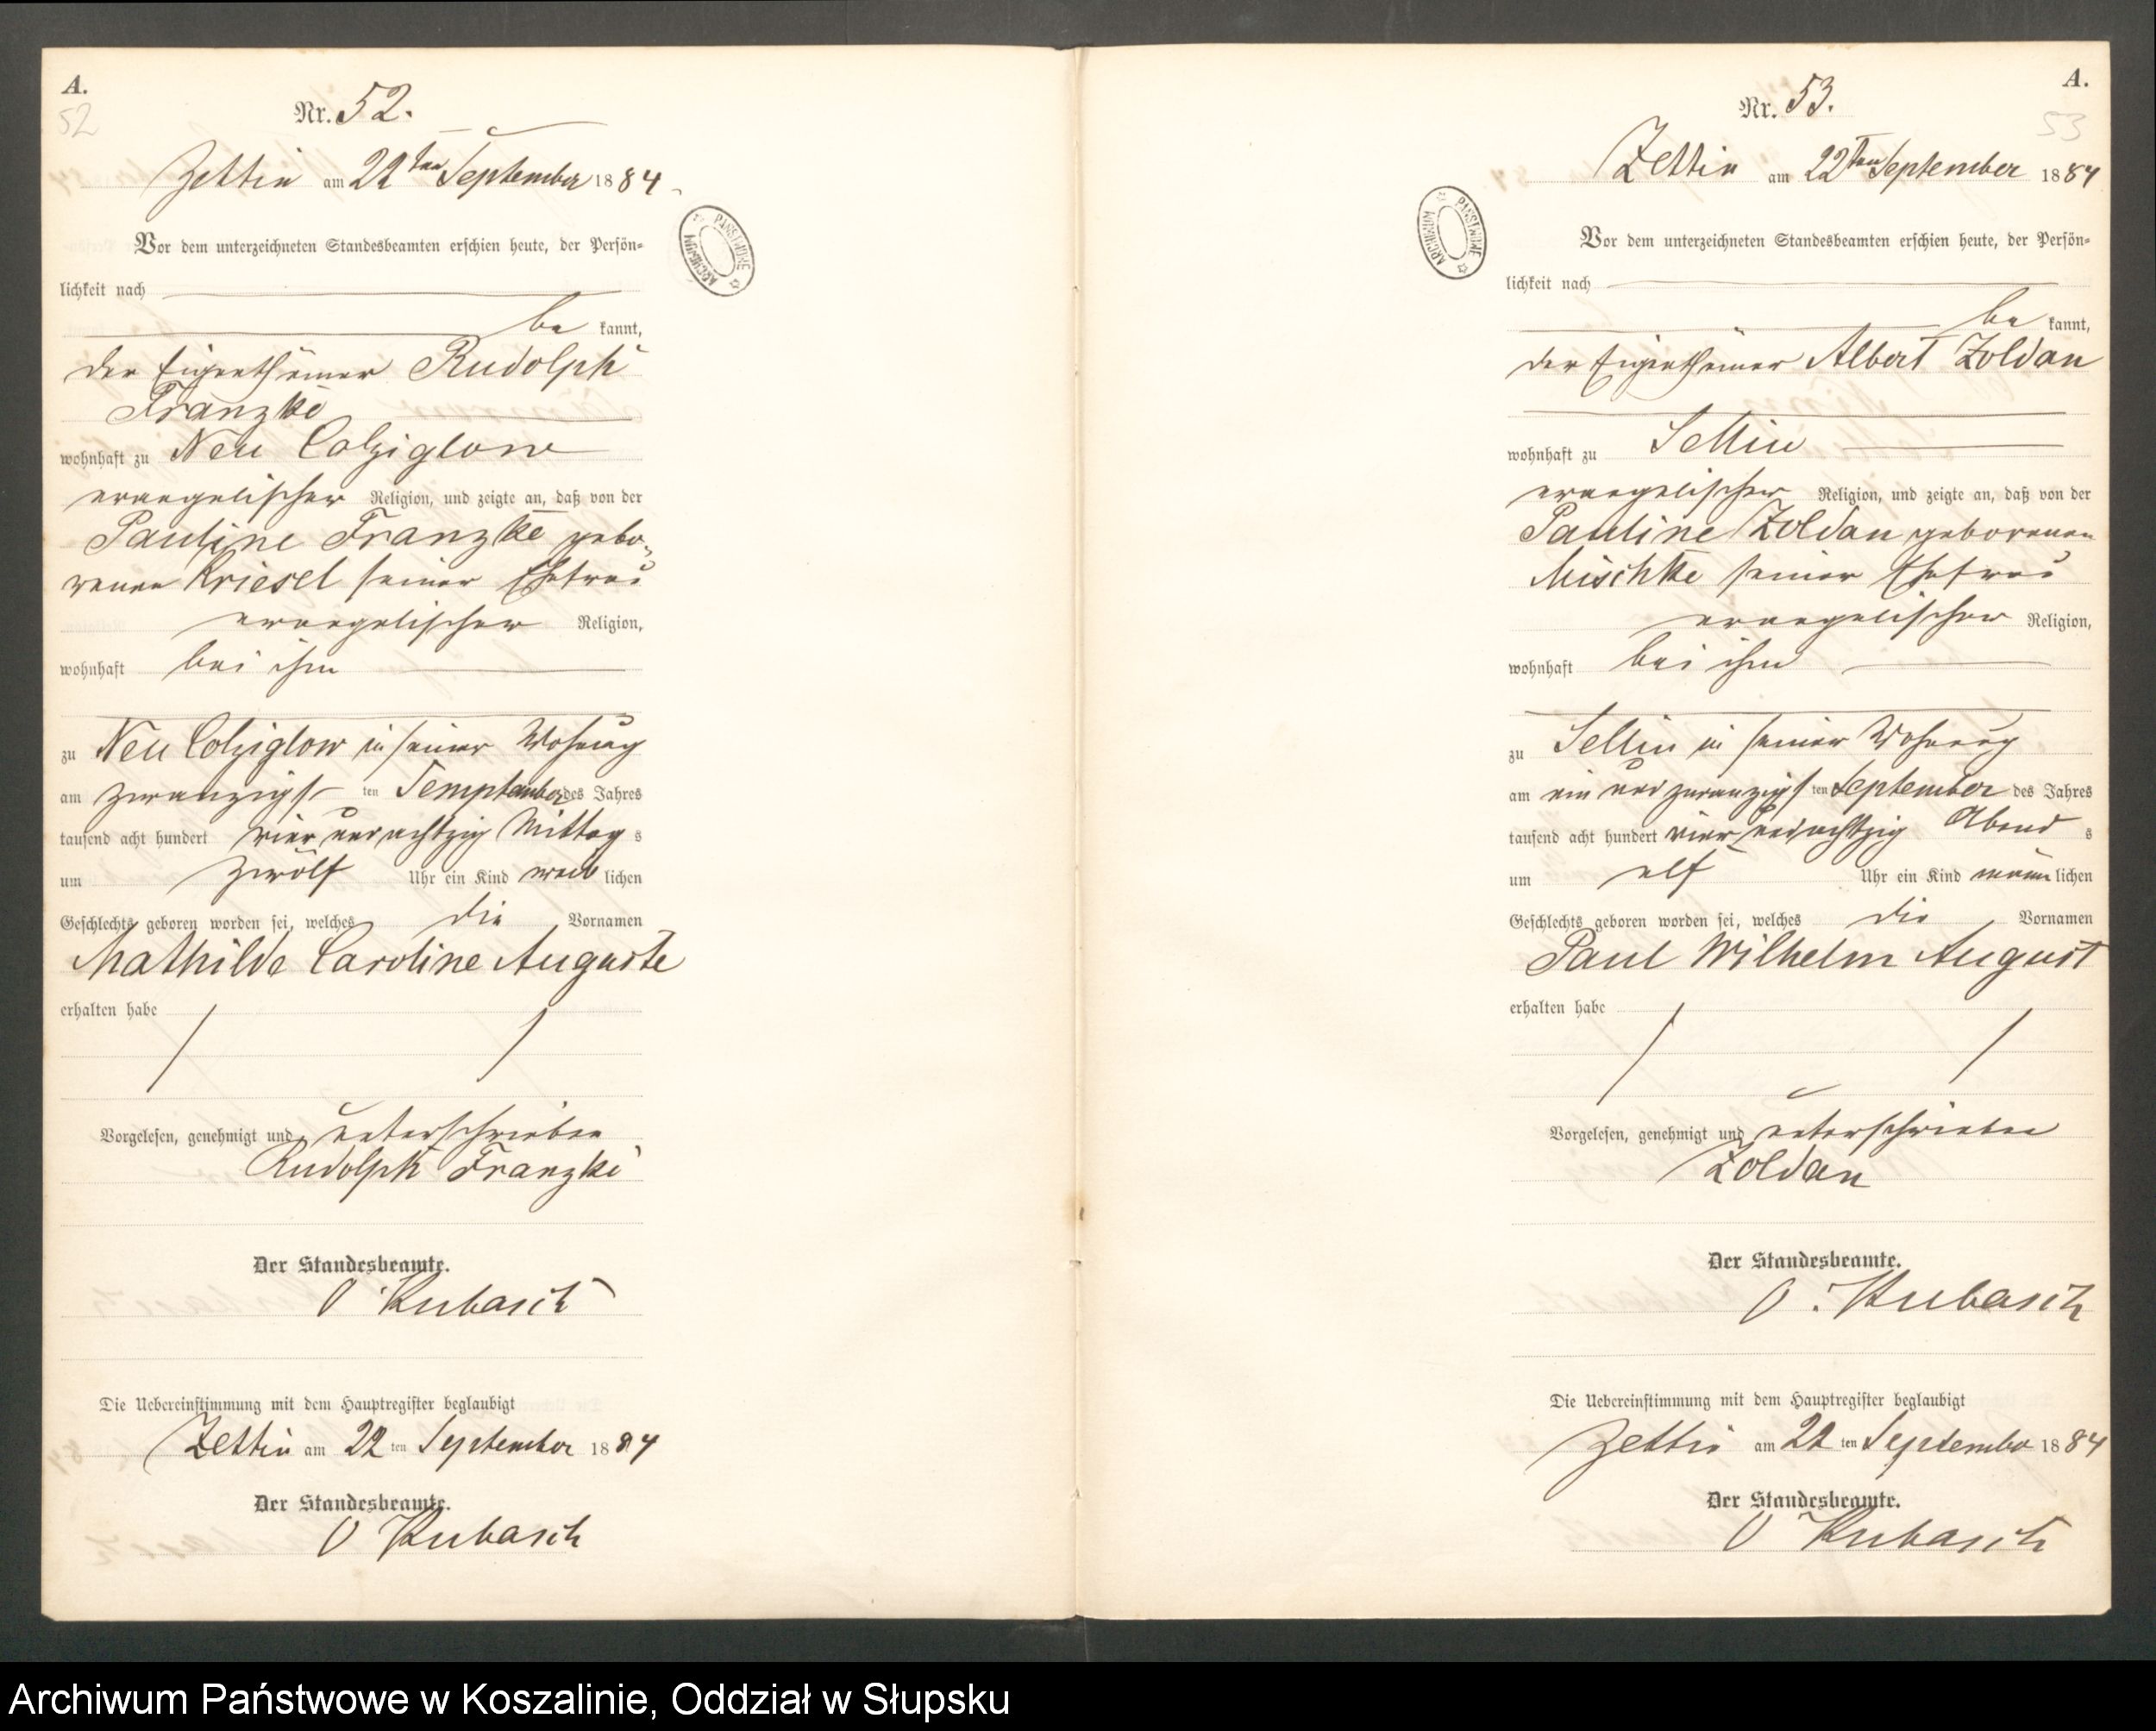 A.
52
Nr. 52.
Zettin am 22ten September 1884
Vor dem unterzeichneten Standesbeamten erschien heute, der Persön=
lichkeit nach
be kannt,
der Eigenthümer Rudolph
Franzke
wohnhaft zu Neu Colziglow
evangelischer Religion, und zeigte an, daß von der
Pauline Franzke gebo=
renen Kriesel seiner Ehefrau
evangelischer Religion,
wohnhaft bei ihm
zu Neu Colziglow in seiner Wohnung
am zwanzigs ten Semptember des Jahres
tausend acht hundert vier und achtzig Mittag s
um zwölf Uhr ein Kind weib lichen
Geschlechts geboren worden sei, welches die Vornamen
Mathilde Caroline Auguste
erhalten habe
Vorgelesen, genehmigt und unterschrieben
Rudolph Franzke
Der Standesbeamte.
O Kubasch
Die Uebereinstimmung mit dem Hauptregister beglaubigt
Zettin am 22 ten September 1884
Der Standesbeamte.
O Kubasch
ARCHIWUM PAŃSTWOWE
A.
53
Nr. 53.
Zettin am 22ten September 1884
Vor dem unterzeichneten Standesbeamten erschien heute, der Persön=
lichkeit nach
be kannt,
der Eigenthümer Albert Zoldan
wohnhaft zu Sellin
evangelischer Religion, und zeigte an, daß von der
Pauline Zoldan geborenen
Mischke seiner Ehefrau
evangelischer Religion,
wohnhaft bei ihm
zu Sellin in seiner Wohnung
am ein und zwanzigs ten September des Jahres
tausend acht hundert vier und achtzig Abend s
um elf Uhr ein Kind männ lichen
Geschlechts geboren worden sei, welches die Vornamen
Paul Wilhelm August
erhalten habe
Vorgelesen, genehmigt und unterschrieben
Zoldan
Der Standesbeamte.
O. Kubasch
Die Uebereinstimmung mit dem Hauptregister beglaubigt
Zettin am 22 ten September 1884
Der Standesbeamte.
O Kubasch
ARCHIWUM PAŃSTWOWE
Archiwum Państwowe w Koszalinie, Oddział w Słupsku